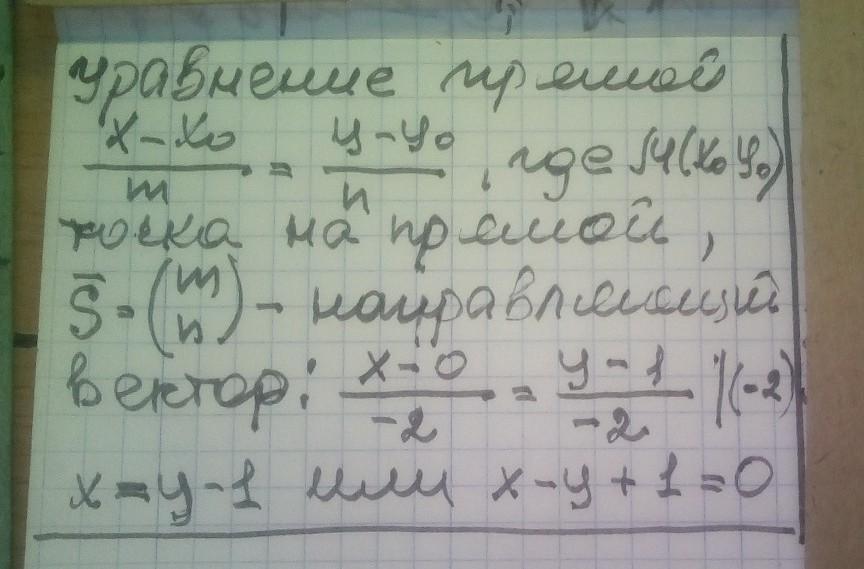 Уравнение прямой
x-x₀/m = y-y₀/n, где M(x₀ y₀)
точка на прямой,
S̄ = (m n) - направляющий
вектор: x-0/-2 = y-1/-2 |(-2)
x = y-1 или x-y+1=0